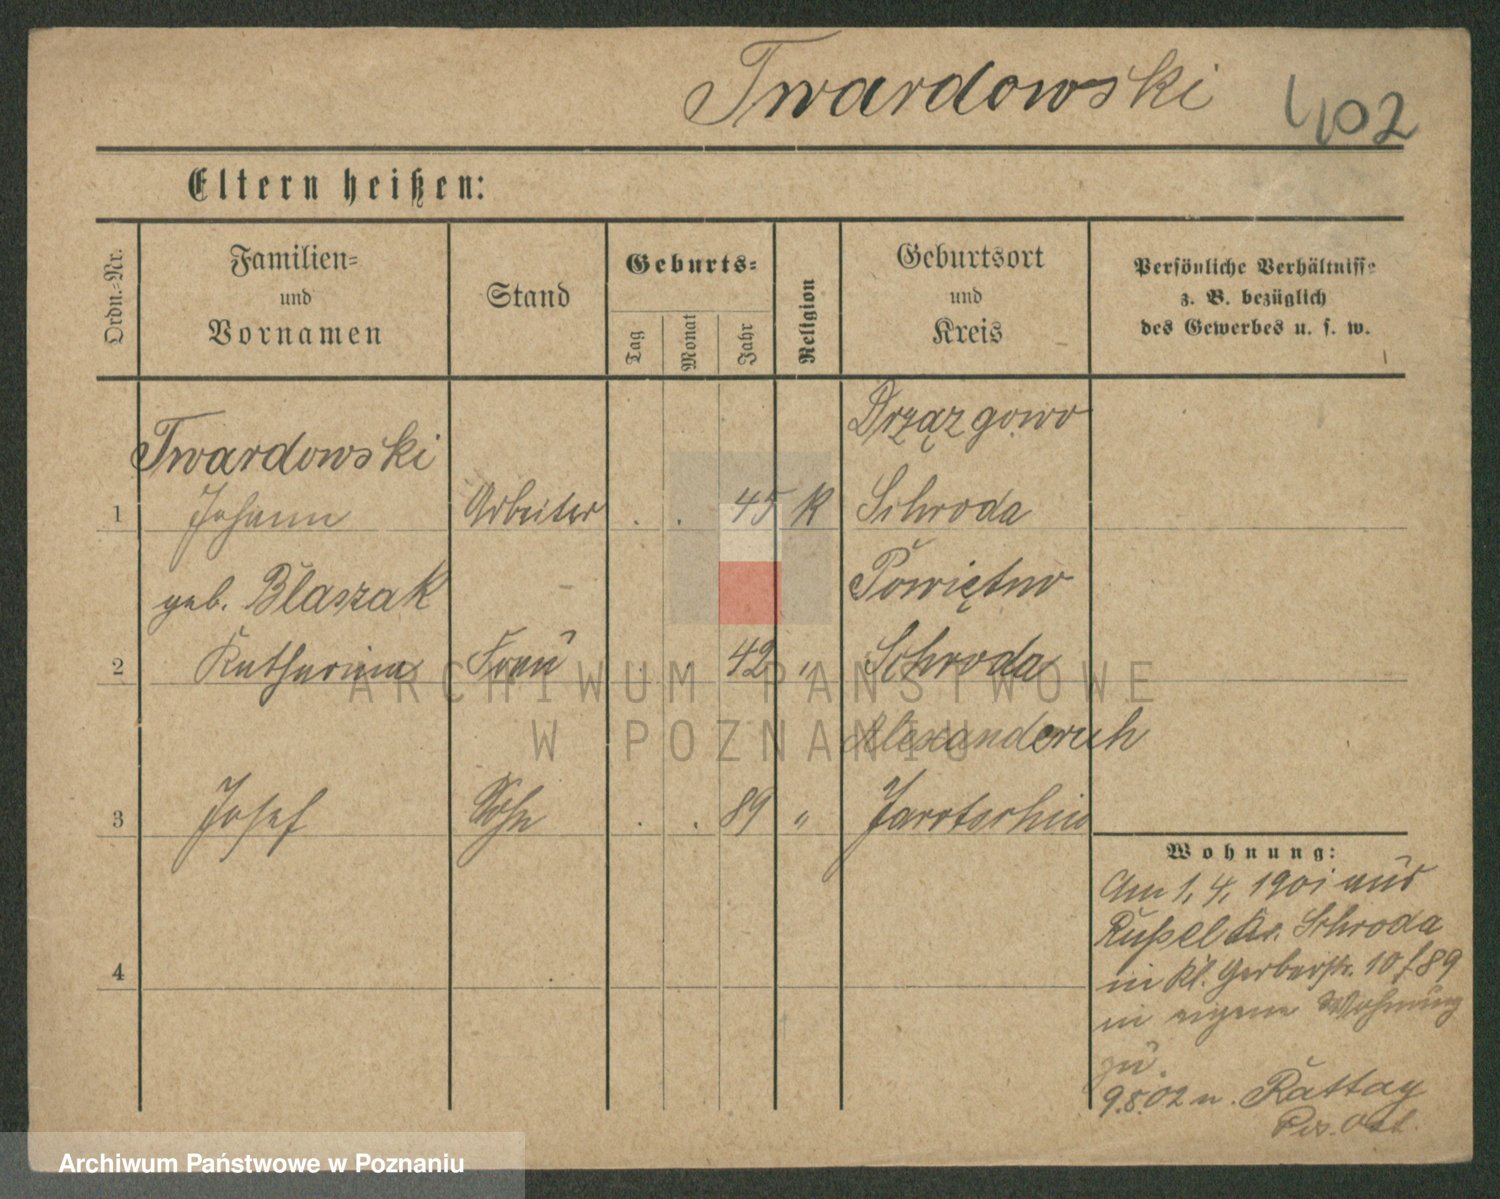 Twardowski 402
Eltern heißen:
Ordn.-Nr.
Familien-
und
Vornamen
Stand
Geburts-
Tag
Monat
Jahr
Religion
Geburtsort
und
Kreis
Persönliche Verhältnisse
z. B. bezüglich
des Gewerbes u. s. w.
Twardowski Drzązgowo
1 Johann Arbeiter . . 45 K Schroda
geb. Blaszak Powiętno
2 Katharina Frau . 42 " Schroda
3 Josef Sohn . . 89 " Jarotschin
4
Wohnung:
Am 1. 4. 1901 aus
Kr. Schroda
in Kl. Gerberstr. 10 f. 89
in eigene Wohnung
zu.
9.8.02 n. Rattay
Krs. Ost.
ARCHIWUM PAŃSTWOWE
W POZNANIU
Archiwum Państwowe w Poznaniu